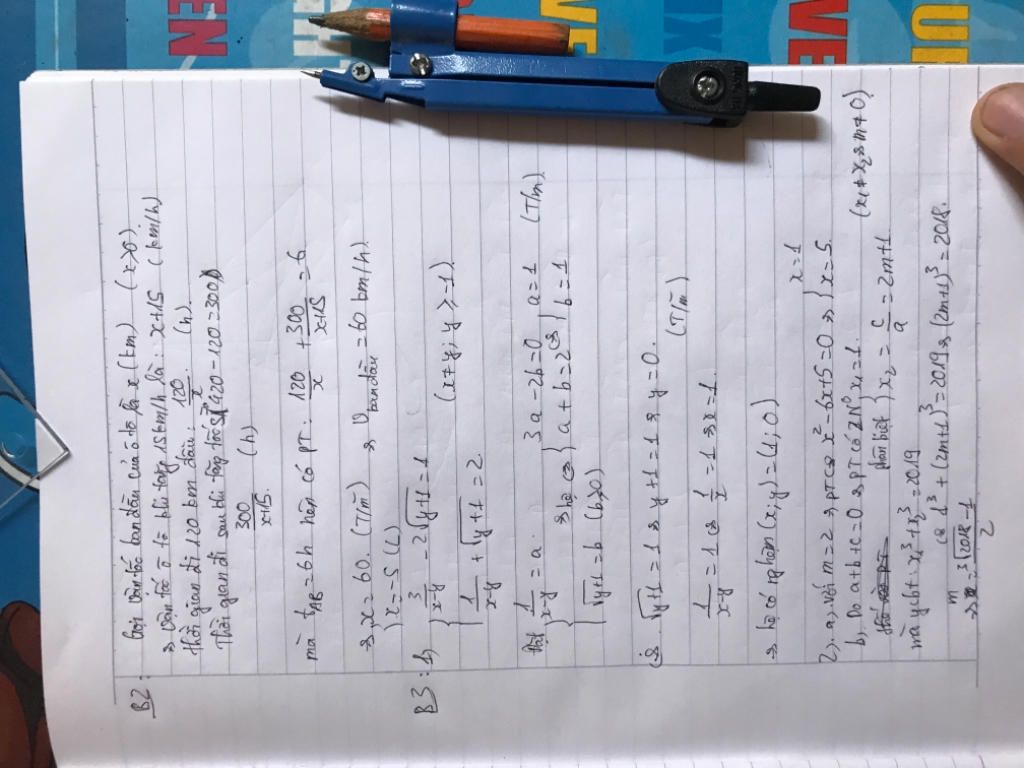 B2: Gọi vận tốc ban đầu của ô tô là x (km) (x>0)
→ Vận tốc ô tô khi tăng 15km/h là: x+15 (km/h)
Thời gian đi 120 km đầu: 120/x (h).
Thời gian đi sau khi tăng tốc 420-120=300
300/(x+15) (h)
mà t_AB = 6h nên có PT: 120/x + 300/(x+15) = 6
→ x = 60. (T/m) → V ban đầu = 60 km/h
x = -5 (L)
B3: 1, { 3/(x-y) - 2√(y+1) = 1
1/(x-y) + √(y+1) = 2. (x≠y; y ≥ -1)
Đặt { 1/(x-y) = a. → hệ ⇔ { 3a-2b=0 ⇔ { a=1 (T/m)
√(y+1) = b (b≥0) a+b=2 b=1
√(y+1) = 1 → y+1=1 → y=0.
1/(x-y) = 1 ⇔ 1/x = 1 → x=1. (T/m)
→ hệ có nghiệm (x;y) = (1;0)
2). a, Với m=2 → PT ⇔ x²-6x+5=0 → { x=1
x=5.
b, Do a+b+c=0 → PT có 2 N⁰ x₁=1.
phân biệt x₂ = c/a = 2m+1 (x₁≠x₂ → m≠0)
mà x₁³+x₂³=2019
⇔ 1³+(2m+1)³=2019 → (2m+1)³=2018.
→ m = (³√2018 - 1)/2
EN
VE
IX
VE
UE